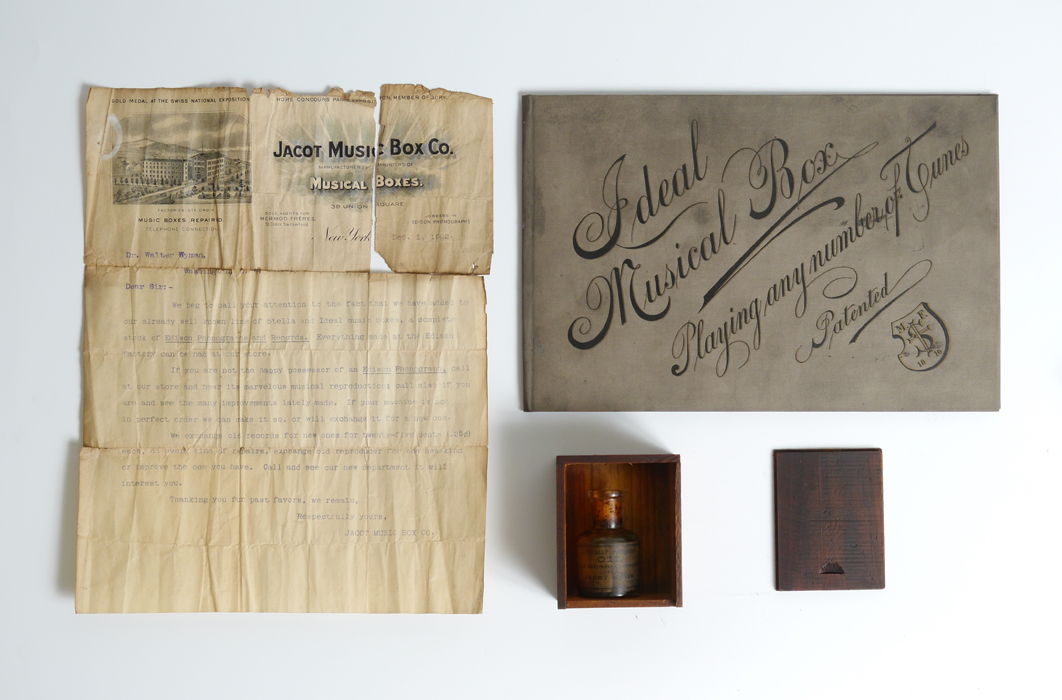 GOLD MEDAL AT THE SWISS NATIONAL EXPOSITION
HORS CONCOURS PARIS MEMBER OF JURY
JACOT MUSIC BOX CO.
MANUFACTURERS IMPORTERS OF
MUSICAL BOXES.
39 UNION SQUARE
MUSIC BOXES REPAIRED.
TELEPHONE CONNECTION
SOLE AGENTS FOR
MERMOD FRÈRES
JOBBERS IN
EDISON PHONOGRAPHS
New York
Dec. 1, 190
Dr. Walter Wyman,
Dear Sir:-
We beg to call your attention to the fact that we have added to
our already well known line of Stella and Ideal music boxes, a complete
stock of Edison Phonographs and Records. Everything made at the Edison
Factory can be had at our store.
If you are not the happy possessor of an Edison Phonograph, call
at our store and hear its marvelous musical reproduction; call also if you
are and see the many improvements lately made. If your machine is not
in perfect order we can make it so, or will exchange it for a new one.
We exchange old records for new ones for twenty-five cents (.25¢)
each, do every kind of repairs, exchange old reproducer for the new kind
or improve the one you have. Call and see our new department, it will
interest you.
Thanking you for past favors, we remain,
Respectfully yours,
JACOT MUSIC BOX CO.
Ideal
Musical Box
Playing any number of Tunes
Patented
M. F.
18 16
OIL